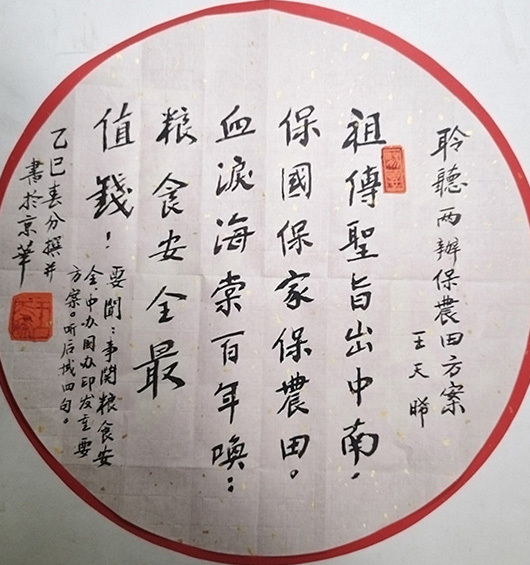 聆聽两辦保農田方案
王天晞
祖傳聖旨出中南。
保國保家保農田。
血淚海棠百年喚：
粮食安全最
值錢！
要閒：事関粮食安
全，中办国办印发主要
方案。听后成四句。
乙巳春分撰并
書於京華